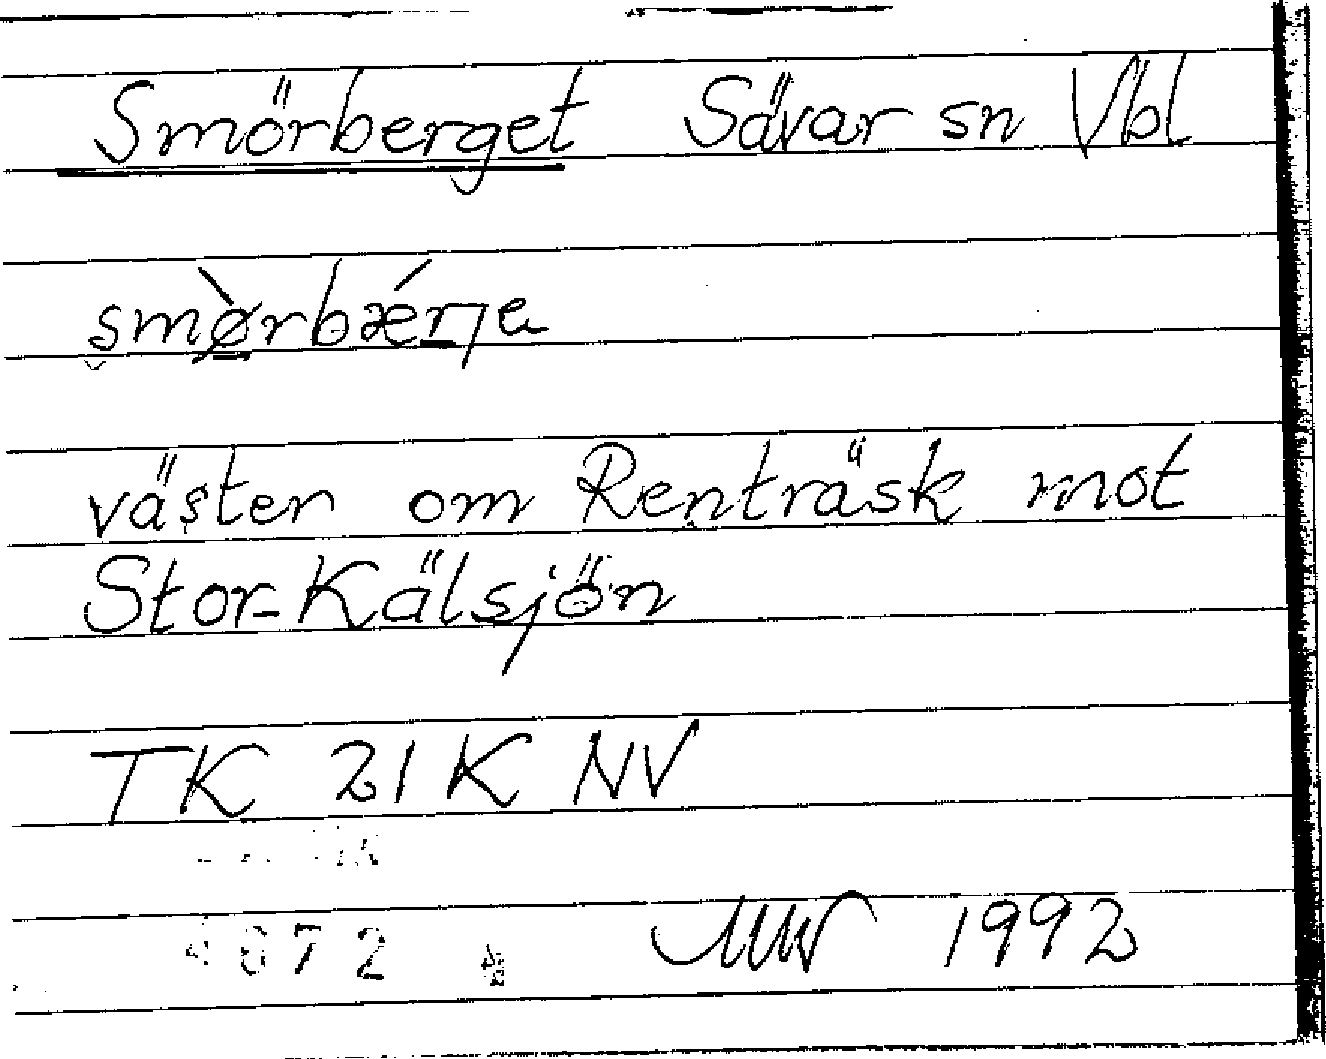 Smörberget Sävar sn Vbl
smø̀rbǽrje
väster om Renträsk mot
Stor-Kälsjön
TK 21 K NV
1992